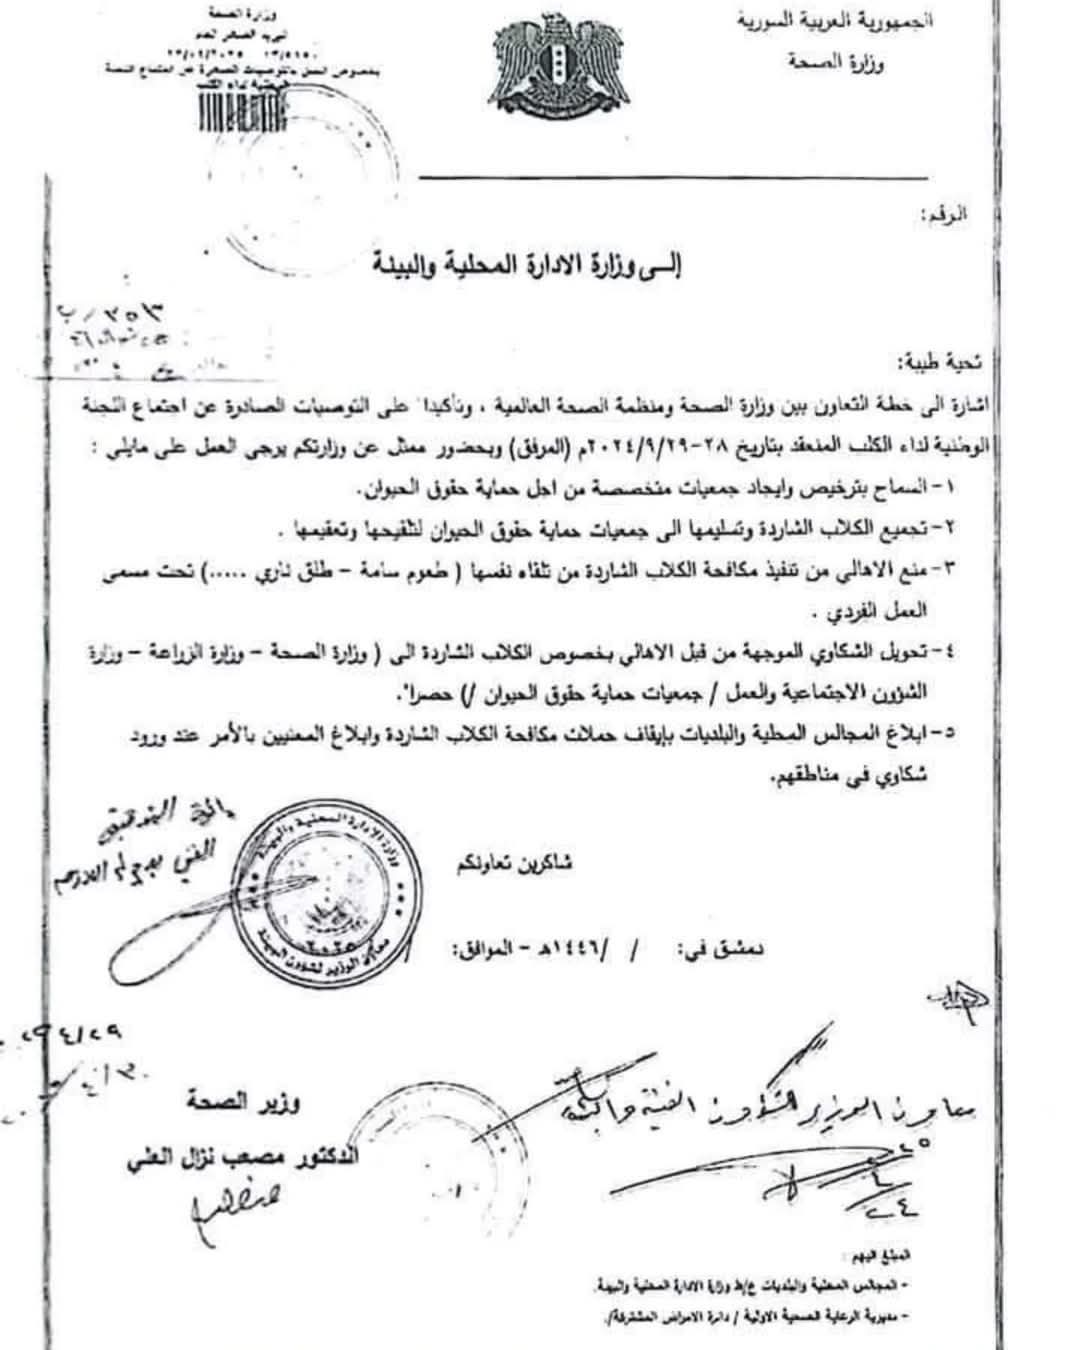 الجمهورية العربية السورية
وزارة الصحة
وزارة الصحة
الرقم:
إلى وزارة الادارة المحلية والبيئة
٣٥٣
تحية طيبة:
اشارة الى خطة التعاون بين وزارة الصحة ومنظمة الصحة العالمية ، وتأكيدا" على التوصيات الصادرة عن اجتماع اللجنة
الوطنية لداء الكلب المنعقد بتاريخ ٢٨-٢٠٢٤/٩/٢٩م (المرفق) وبحضور ممثل عن وزارتكم يرجى العمل على مايلي :
١- السماح بترخيص وايجاد جمعيات متخصصة من اجل حماية حقوق الحيوان.
٢- تجميع الكلاب الشاردة وتسليمها الى جمعيات حماية حقوق الحيوان لتلقيحها وتعقيمها .
٣- منع الاهالي من تنفيذ مكافحة الكلاب الشاردة من تلقاء نفسها ( طعوم سامة – طلق ناري .....) تحت مسمى
العمل الفردي .
٤- تحويل الشكاوي الموجهة من قبل الاهالي بخصوص الكلاب الشاردة الى ( وزارة الصحة – وزارة الزراعة – وزارة
الشؤون الاجتماعية والعمل / جمعيات حماية حقوق الحيوان /) حصرا".
٥- ابلاغ المجالس المحلية والبلديات بإيقاف حملات مكافحة الكلاب الشاردة وابلاغ المعنيين بالأمر عند ورود
شكاوي في مناطقهم.
شاكرين تعاونكم
وزارة الادارة المحلية والبيئة
معاون الوزير لشؤون البيئة
دمشق في: / /١٤٤٦هـ – الموافق:
وزير الصحة
الدكتور مصعب نزال العلي
معاون الوزير للشؤون الفنية والبيئة
المبلغ اليهم :
- المجالس المحلية والبلديات ع/ط وزارة الادارة المحلية والبيئة.
- مديرية الرعاية الصحية الاولية / دائرة الامراض المشتركة/.